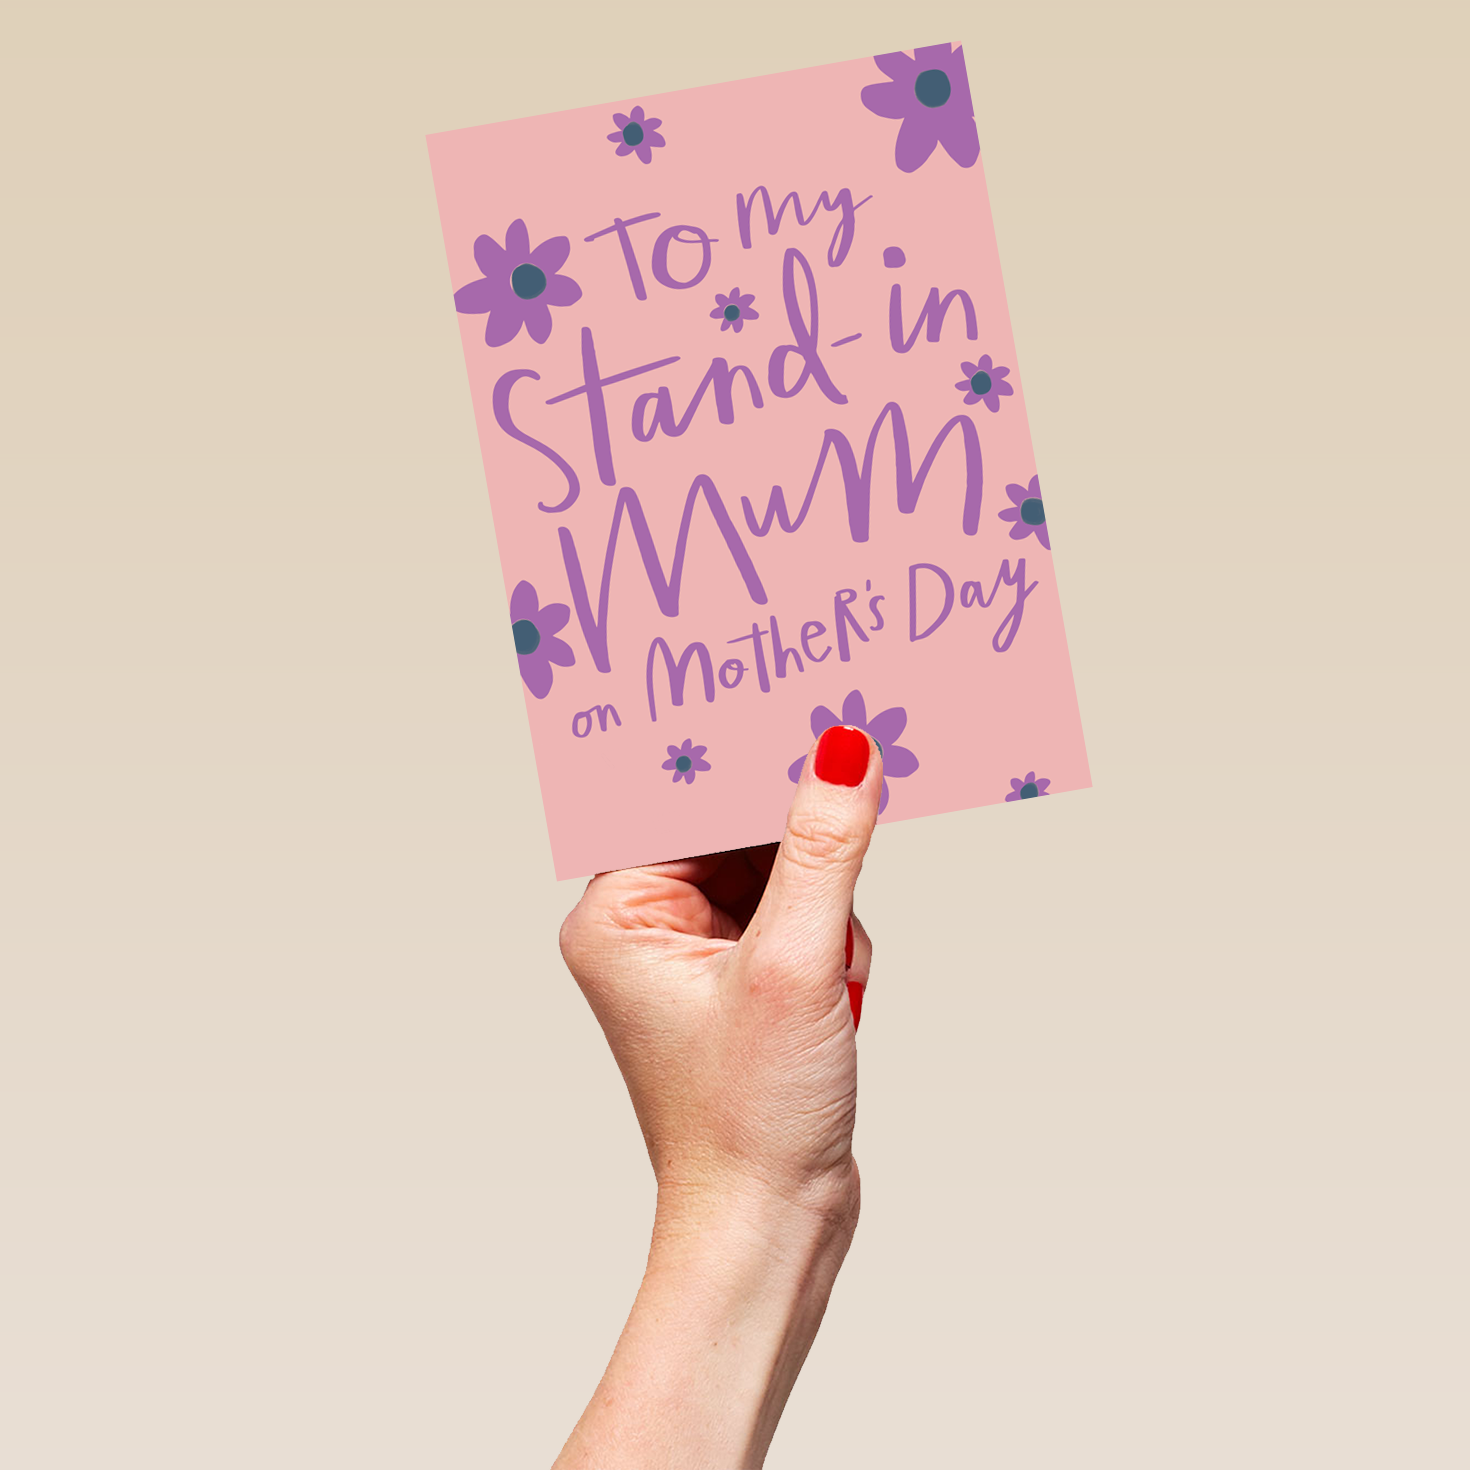 To my
Stand-in
Mum
on Mother's Day